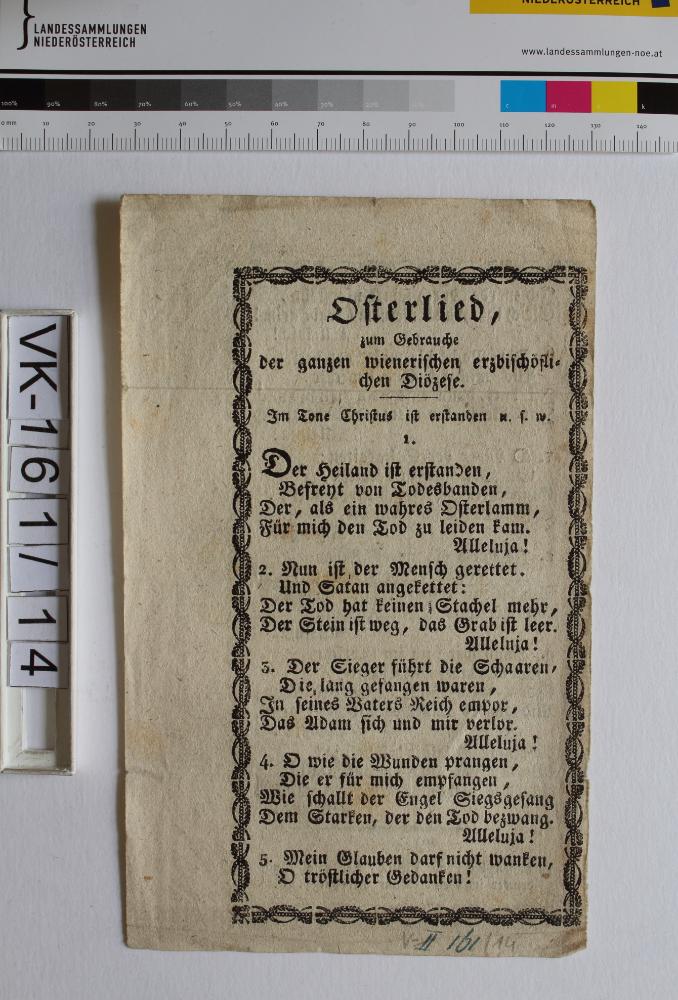 LANDESSAMMLUNGEN
NIEDERÖSTERREICH
NIEDERÖSTERREICH
www.landessammlungen-noe.at
100% 90% 80% 70% 60% 50% 40% 30% 20% 10% c m k
0 mm 10 20 30 40 50 60 70 80 90 100 110 120 130 140
VK-161/14
Osterlied,
zum Gebrauche
der ganzen wienerischen erzbischöfli-
chen Diözese.
Im Tone Christus ist erstanden u. s. w.
1.
Der Heiland ist erstanden,
Befreyt von Todesbanden,
Der, als ein wahres Osterlamm,
Für mich den Tod zu leiden kam.
Alleluja!
2. Nun ist der Mensch gerettet.
Und Satan angekettet:
Der Tod hat keinen Stachel mehr,
Der Stein ist weg, das Grab ist leer.
Alleluja!
3. Der Sieger führt die Schaaren,
Die lang gefangen waren,
In seines Vaters Reich empor,
Das Adam sich und mir verlor.
Alleluja!
4. O wie die Wunden prangen,
Die er für mich empfangen,
Wie schallt der Engel Siegsgesang
Dem Starken, der den Tod bezwang.
Alleluja!
5. Mein Glauben darf nicht wanken,
O tröstlicher Gedanken!
V-II 161/14